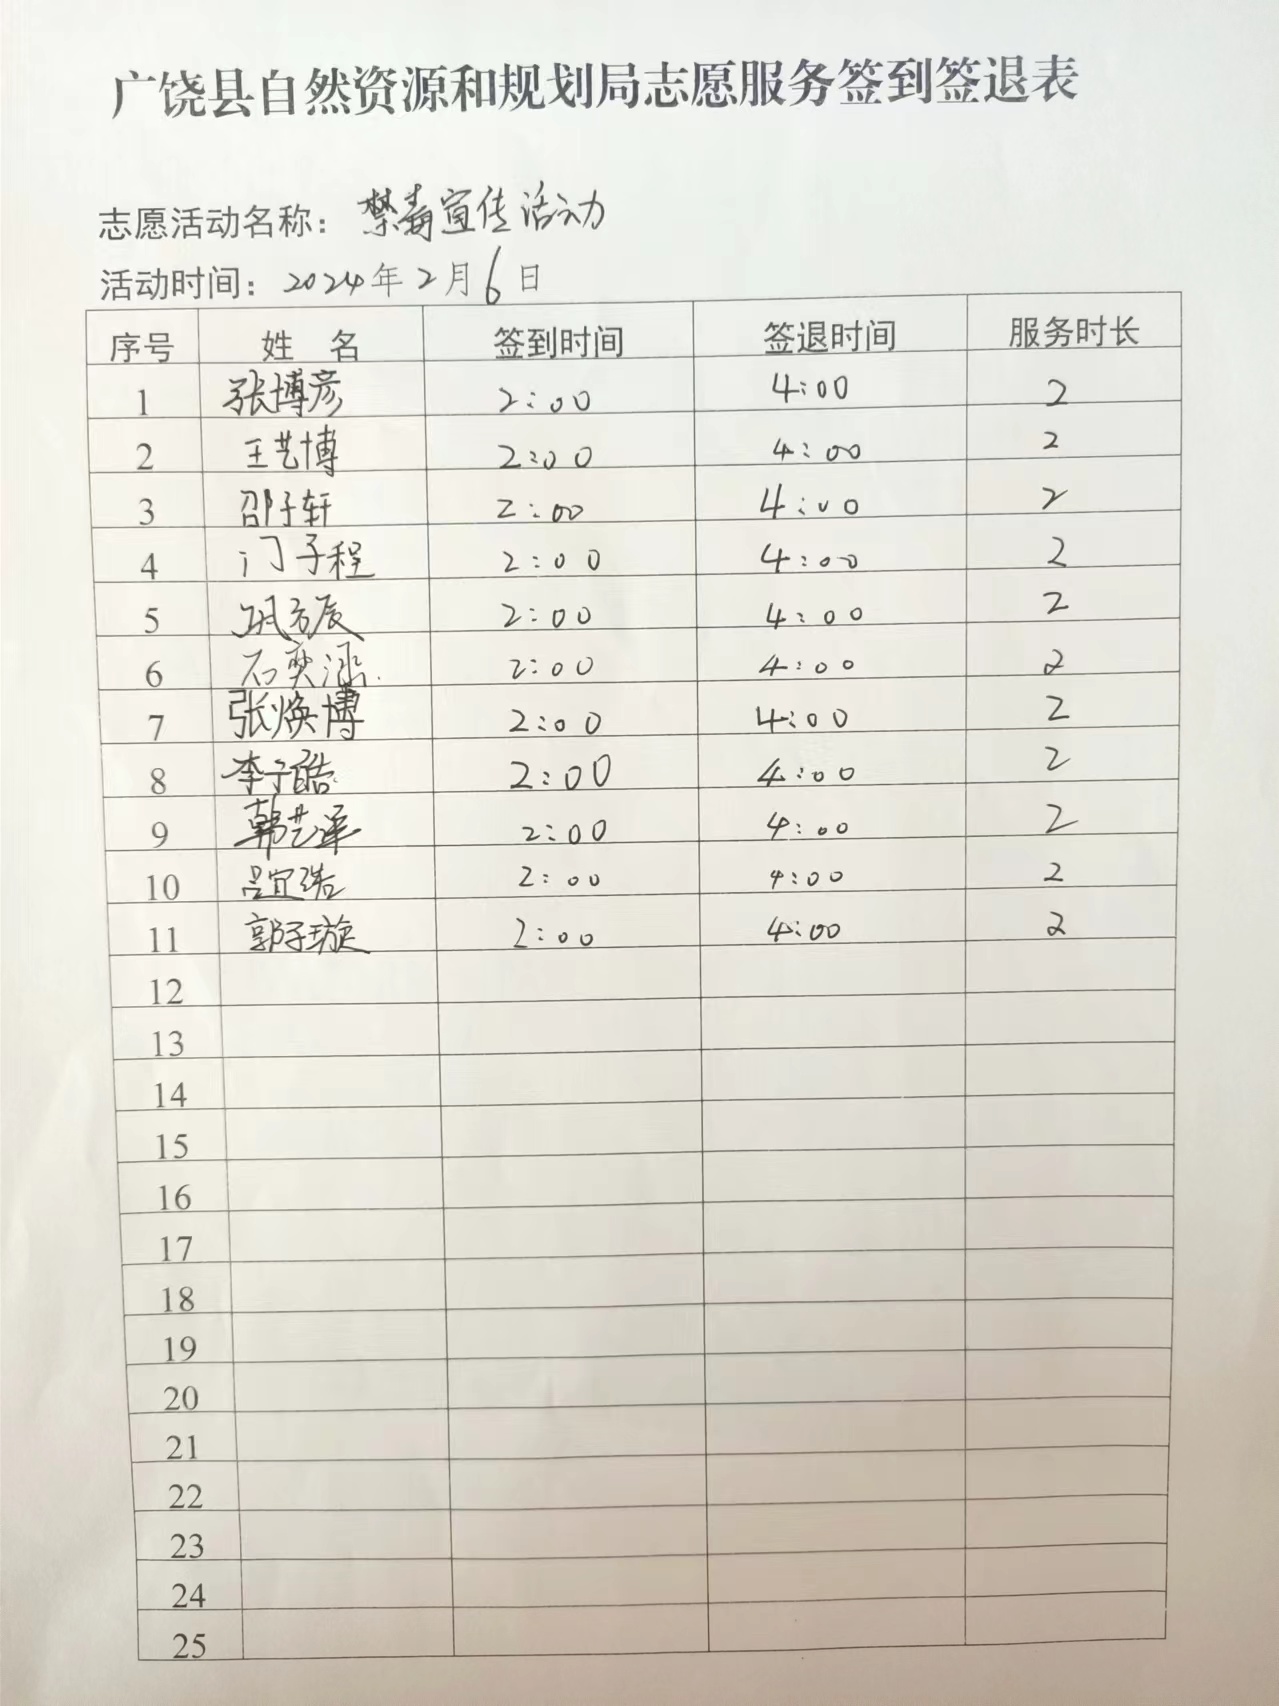 广饶县自然资源和规划局志愿服务签到签退表
志愿活动名称：禁毒宣传活动
活动时间：2024年2月6日
序号 姓 名 签到时间 签退时间 服务时长
1 张博彦 2:00 4:00 2
2 王艺博 2:00 4:00 2
3 邵子轩 2:00 4:00 2
4 门子程 2:00 4:00 2
5 巩方辰 2:00 4:00 2
6 石奕涵 2:00 4:00 2
7 张焕博 2:00 4:00 2
8 李子皓 2:00 4:00 2
9 韩艺泽 2:00 4:00 2
10 吕宜浩 2:00 4:00 2
11 郭子璇 2:00 4:00 2
12
13
14
15
16
17
18
19
20
21
22
23
24
25